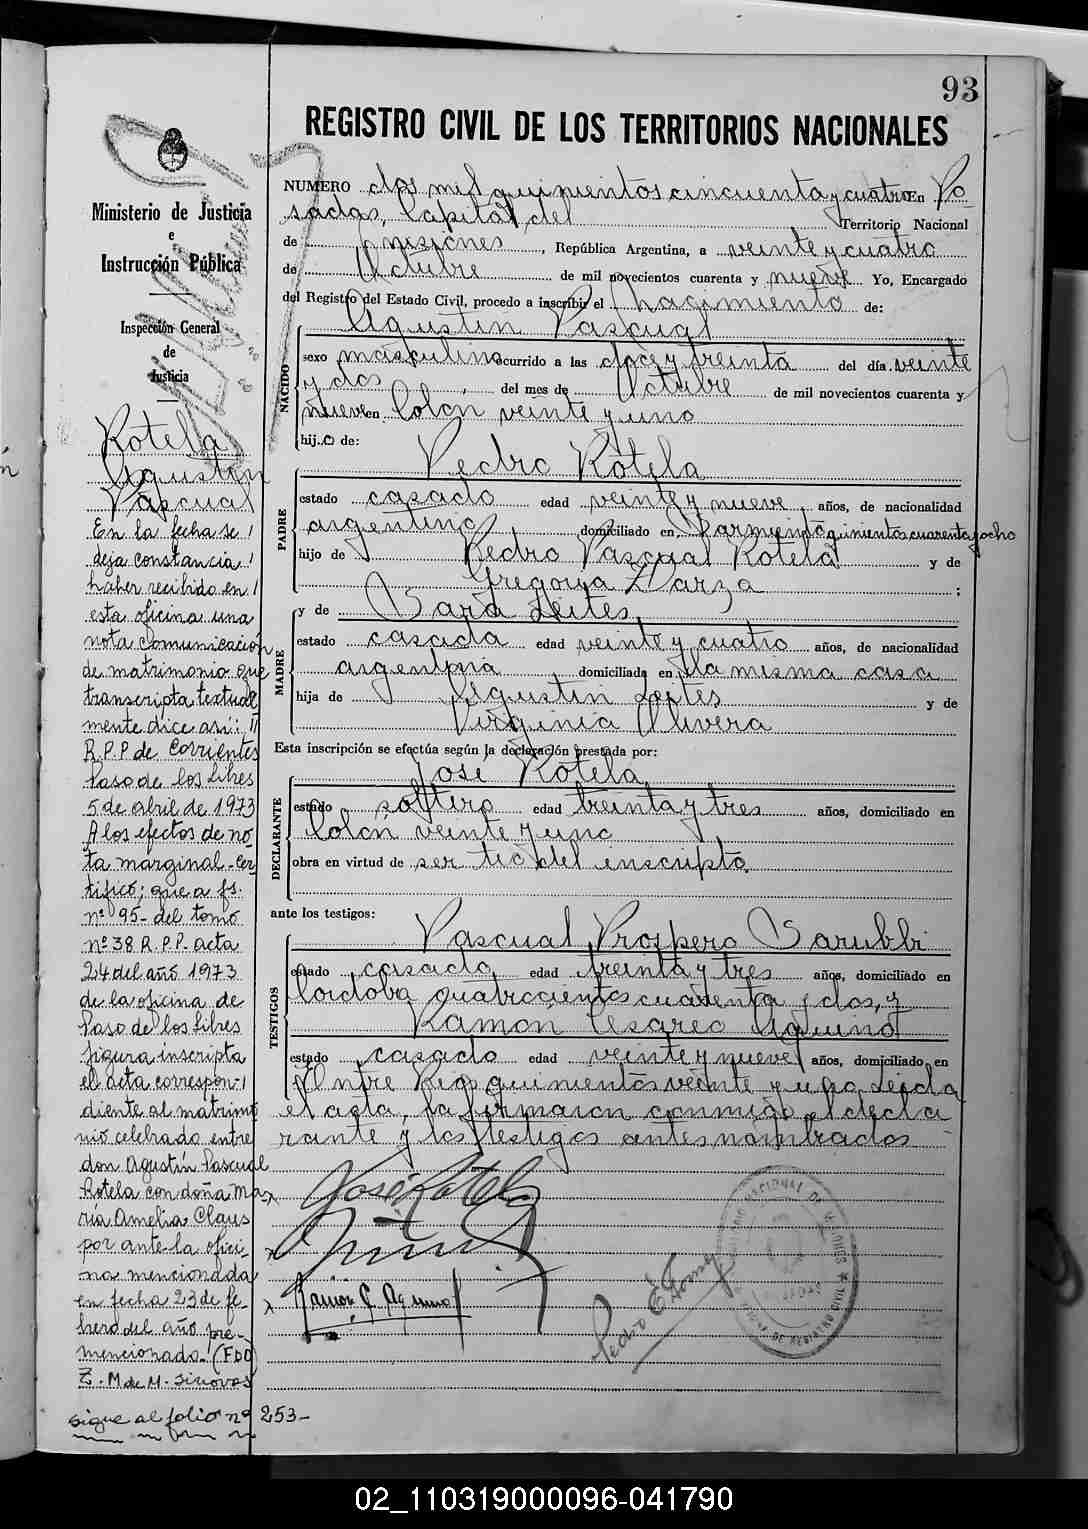 93
REGISTRO CIVIL DE LOS TERRITORIOS NACIONALES
Ministerio de Justicia
e
Instrucción Pública
Inspección General
de
Justicia
NUMERO dos mil quinientos cincuenta y cuatro En Po-
sadas, Capital del Territorio Nacional
de Misiones, República Argentina, a veinte y cuatro
de Octubre de mil novecientos cuarenta y nueve Yo, Encargado
del Registro del Estado Civil, procedo a inscribir el nacimiento de:
Agustin Pascual
NACIDO
sexo masculino ocurrido a las doce y treinta del día veinte
y dos del mes de Octubre de mil novecientos cuarenta y
nueve en Colón veinte y uno
hijo de:
Pedro Rotela
PADRE
estado casado edad veinte y nueve años, de nacionalidad
argentino, domiciliado en Sarmiento quinientos cuarenta y ocho
hijo de Pedro Pascual Rotela y de
Gregoria Darza;
y de Sara Leites
MADRE
estado casada edad veinte y cuatro años, de nacionalidad
argentina domiciliada en la misma casa
hija de Agustin Leites y de
Virginia Olivera
Esta inscripción se efectúa según la declaración prestada por:
José Rotela
DECLARANTE
estado soltero edad treinta y tres años, domiciliado en
Colón veinte y uno
obra en virtud de ser tio del inscripto.
ante los testigos:
Pascual Prospero Barubbi
TESTIGOS
estado casado edad treinta y tres años, domiciliado en
Cordoba quatrocientos cuarenta y dos, y
Ramón Cesareo Aquino
estado casado edad veinte y nueve años, domiciliado en
Entre Rios quinientos veinte y uno. Leida
el acta, la firmaron conmigo el decla
rante y los testigos antes nombrados
José Rotela
Ramón C. Aquino
Rotela
Agustin
Pascual
En la fecha se
deja constancia
haber recibido en
esta oficina una
nota comunicación
de matrimonio que
transcripta textual
mente dice así: "
R.P.P de Corrientes
Paso de los Libres
5 de abril de 1973
A los efectos de no
ta marginal-cer
tifico; que a fs.
nº 95- del tomo
nº 38 R.P.P- acta
24 del año 1973
de la oficina de
Paso de los Libres
figura inscripta
el acta correspon-
diente al matrimo
nio celebrado entre
don Agustín Pascual
Rotela con doña Ma
ría Amelia Claus
por ante la ofici-
na mencionada
en fecha 23 de fe-
brero del año pre-
mencionado- (FDO
Z. M de M. Sinovas
sigue al folio nº 253-
02_110319000096-041790